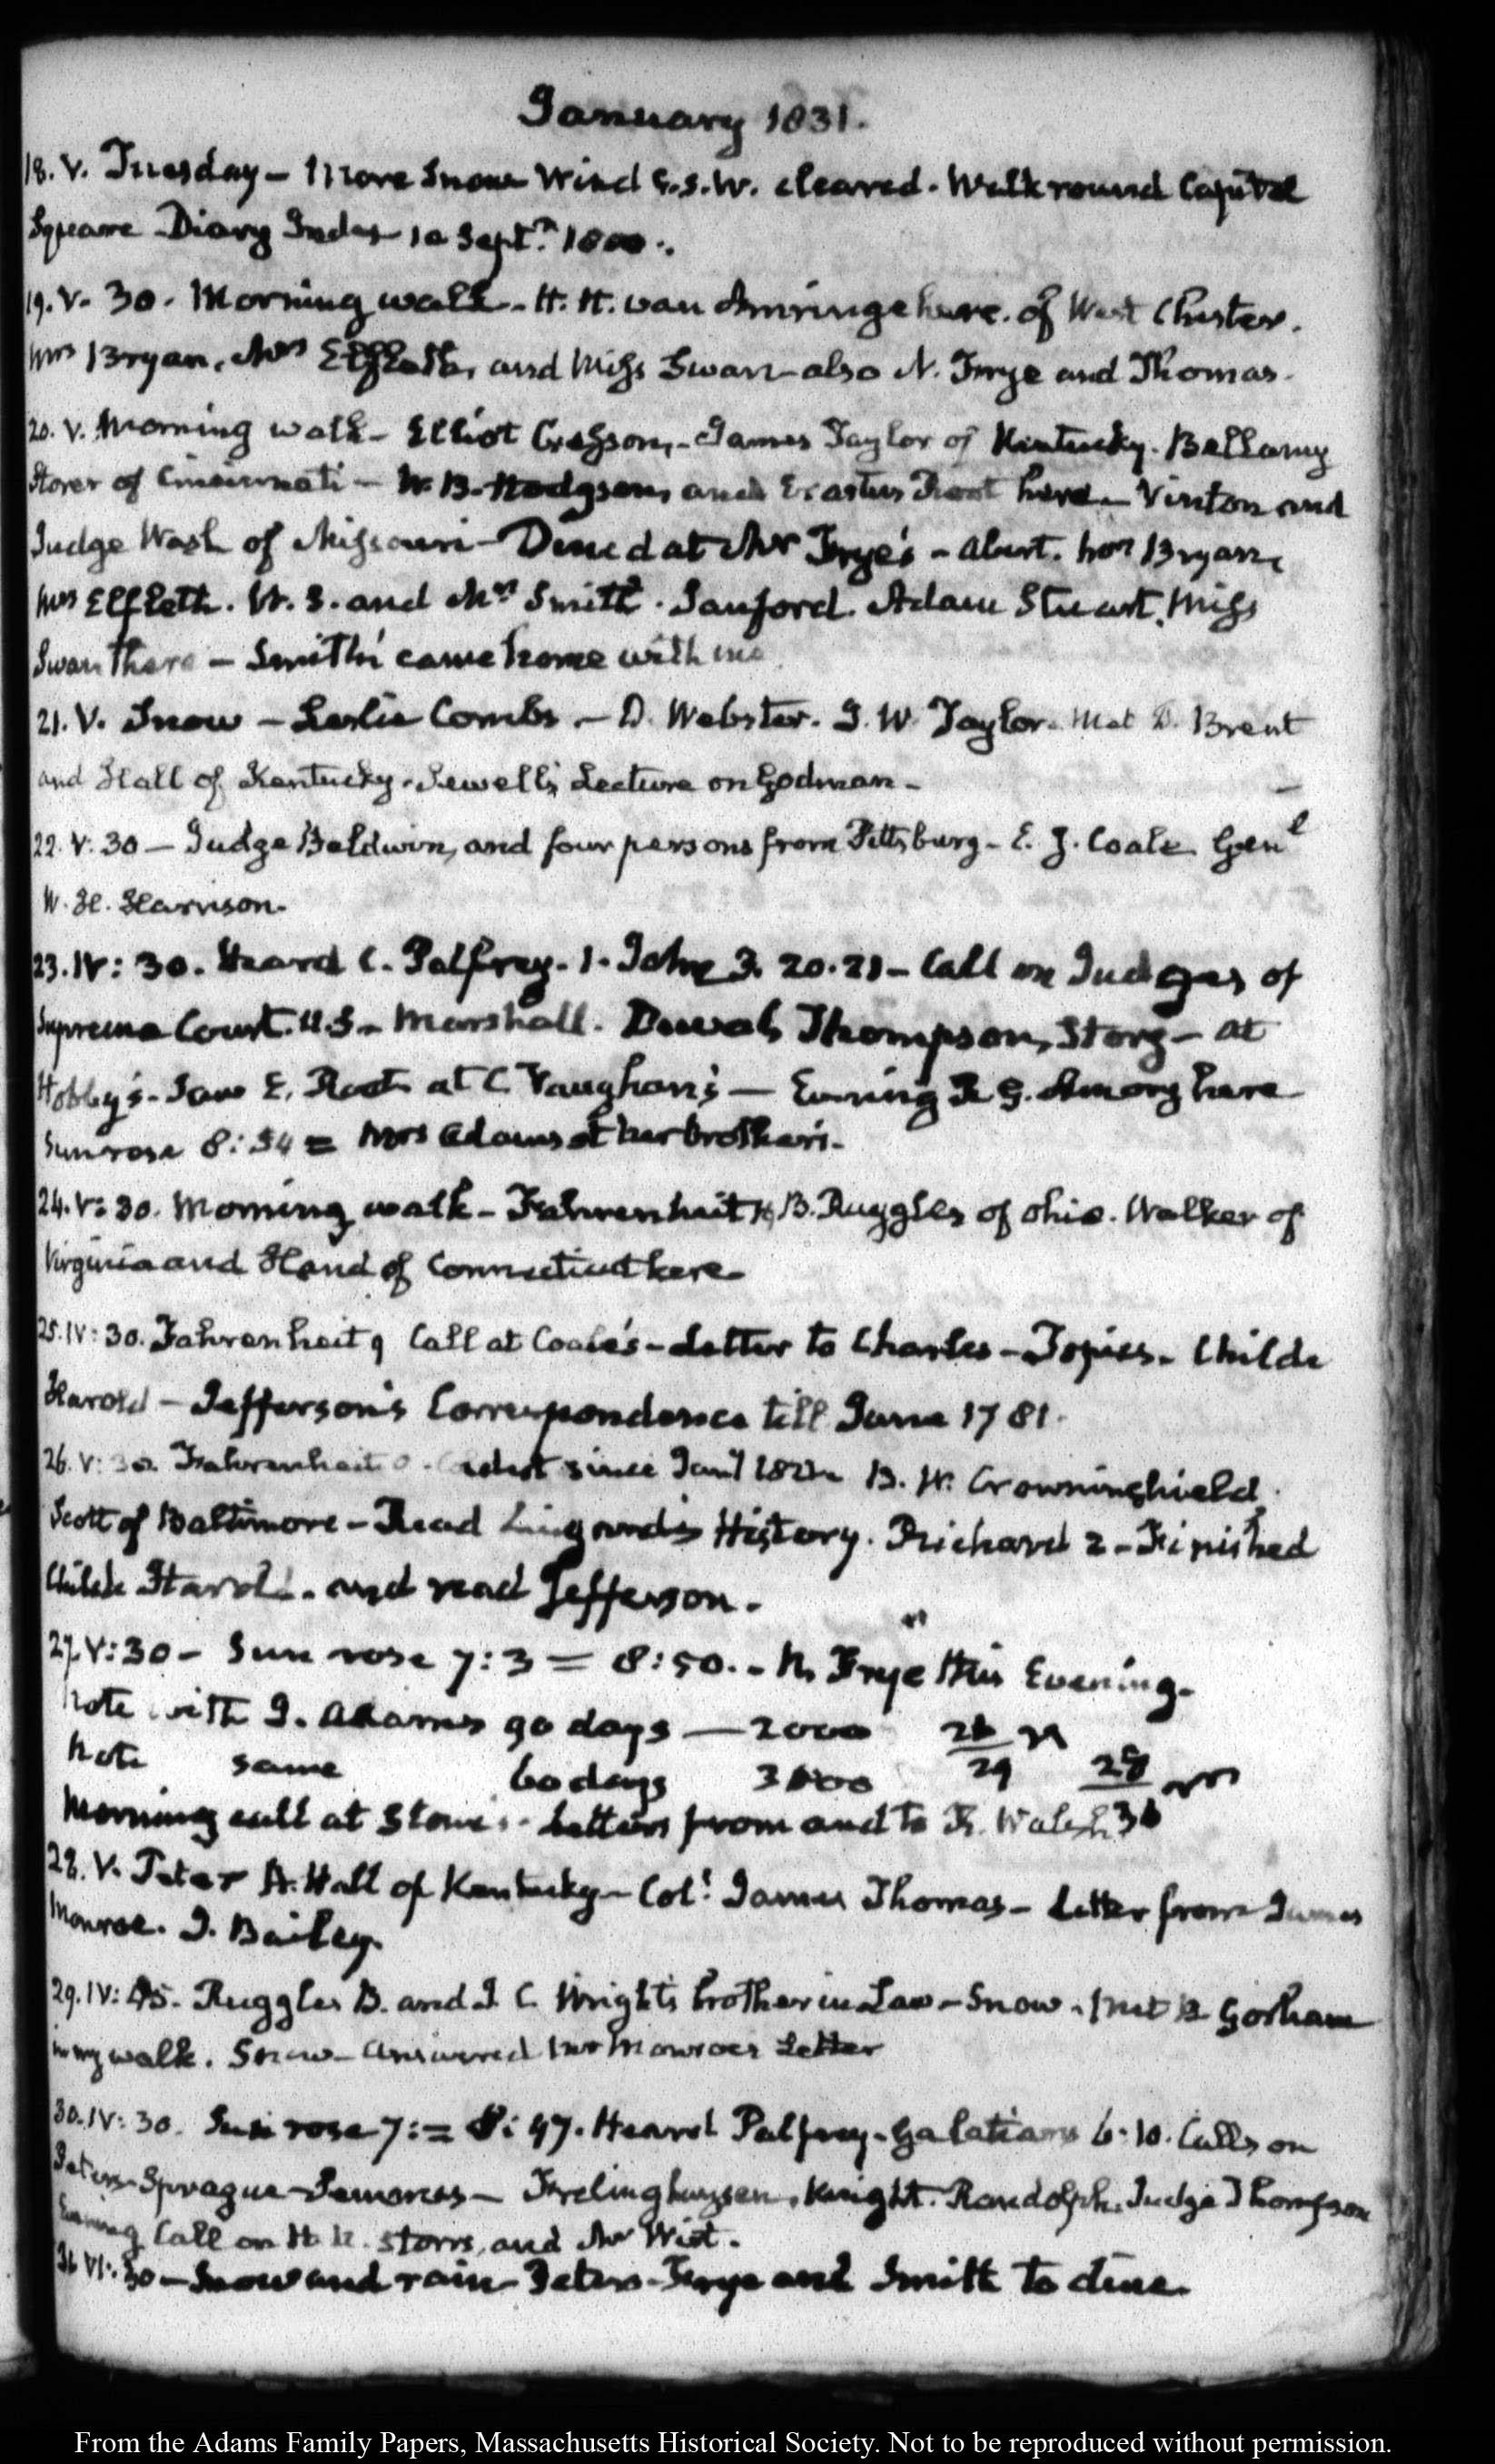 January 1831.
18. V. Tuesday – More Snow Wind S.S.W. cleared. Walk round Capitol
Square Diary Index 10 Septr. 1800.
19. V. 30. Morning walk – H. H. van Amringe here. of West Chester.
Mrs Bryan, Mrs Elfreth, and Miss Swan – also N. Frye and Thomas.
20. V. Morning walk – Elliot Cresson, – James Taylor of Kentucky. Bellamy
Storer of Cincinnati – W. B. Hodgson, and Erastus Root here – Vinton and
Judge Wash of Missouri – Dined at Mr Frye's – Mrs Bryan,
Mrs Elfreth. W. S. and Mrs Smith. Sanford. Adam Stuart. Miss
Swan there – Smith came home with me.
21. V. Snow – Leslie Combs. – D. Webster. J. W. Taylor. Met D. Brent
and Hall of Kentucky. Sewell's Lecture on Godman –
22. V: 30 – Judge Baldwin, and four persons from Pittsburg – E. J. Coale Genl
W. H. Harrison.
23. IV: 30. Heard C. Palfrey. 1. John 3. 20. 21 – Call on Judges of
Supreme Court. U.S – Marshall. Duval, Thompson, Story – at
Hobby's – Saw E. Root at C Vaughan's – Evening here
Sun rose 8:54 = Mrs Adams at her brother's.
24. V: 30. Morning walk – Fahrenheit B. Ruggles of Ohio. Walker of
Virginia and Hand of Connecticut here –
25. IV: 30. Fahrenheit 9 Call at Coale's – Letter to Charles – Topics. Childe
Harold – Jefferson's Correspondence till June 1781.
26. V: 30. Fahrenheit 0. Coldest since Jany B. W. Crowninshield
Scott of Baltimore – Read Lingard's History. Richard 2 – Finished
Childe Harold. and read Jefferson.
27. V: 30 – Sun rose 7:3 = 8:50. – N. Frye this Evening.
Note with J. Adams 90 days — 2000 26/29
Note same 60 days 3000 28/30
Morning call at Stone's. Letters from and to R. Walsh
28. V. Peter A. Hall of Kentucky – Coll. James Thomas – Letter from James
Monroe. J. Bailey.
29. IV: 45. Ruggles B. and J. C. Wright's brother in Law – Snow. Met B Gorham
in my walk. Snow – Answered Mr Monroe's Letter
30. IV: 30. Sun rose 7: = 8: 47. Heard Palfrey – Galatians 6. 10. Calls on
Peters Sprague – Frelinghuysen, Knight. Randolph. Judge Thompson
Evening Call on H. R. Storrs, and Mr Wirt.
31. VI: 30 – Snow and rain – Peters – Frye and Smith to dine.
From the Adams Family Papers, Massachusetts Historical Society. Not to be reproduced without permission.